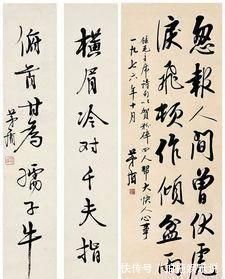 忽報人間曾伏虎
淚飛頓作傾盆雨
毛主席詩句以賀粉碎四人幫大快人心事
一九七六年十月
茅盾
橫眉冷對千夫指
俯首甘為孺子牛
茅盾